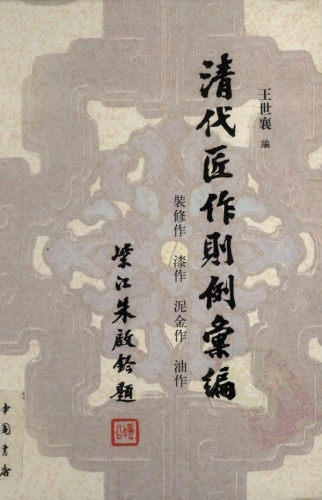 王世襄 編
清代匠作則例彙編
裝修作 漆作 泥金作 油作
紫江朱啟鈐題
中国書店